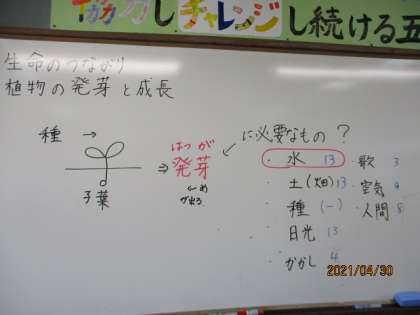 協力しチャレンジし続ける五
生命のつながり
植物の発芽と成長
種 →
子葉
⇒
はつが
発芽
←め
が出る
に必要なもの?
・水 13
・土(畑) 13
・種 (-)
・日光 13
・かかし 4
・歌 3
・空気 9
・人間 8
2021/04/30